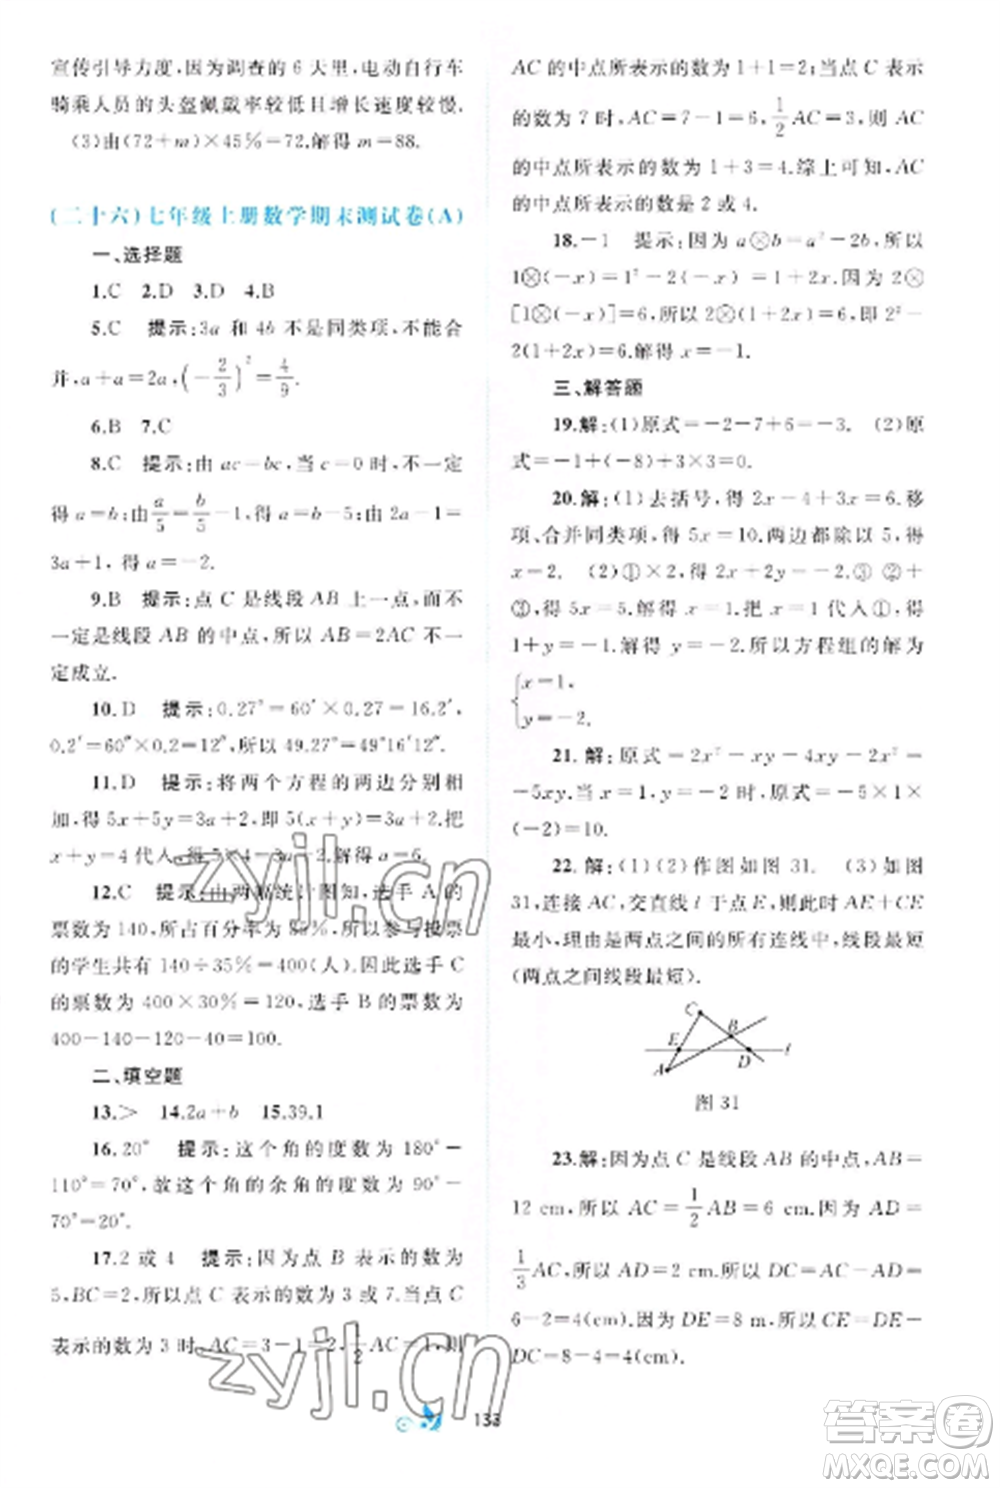 宣传引导力度,因为调查的 6 天里,电动自行车
骑乘人员的头盔佩戴率较低且增长速度较慢.
(3)由(72+m)×45%=72.解得 m=88.
(二十六)七年级上册数学期末测试卷(A)
一、选择题
1.C 2.D 3.D 4.B
5.C 提示:3a 和 4b 不是同类项,不能合
并,a+a=2a,(-2/3)²=4/9.
6.B 7.C
8.C 提示:由 ac=bc,当 c=0 时,不一定
得 a=b;由 a/5=b/5-1,得 a=b-5;由 2a-1=
3a+1,得 a=-2.
9.B 提示:点 C 是线段 AB 上一点,而不
一定是线段 AB 的中点,所以 AB=2AC 不一
定成立.
10.D 提示:0.27°=60′×0.27=16.2′,
0.2′=60″×0.2=12″,所以 49.27°=49°16′12″.
11.D 提示:将两个方程的两边分别相
加,得 5x+5y=3a+2,即 5(x+y)=3a+2.把
x+y=4 代入,得 5×4=3a+2.解得 a=6.
12.C 提示:由两幅统计图知,选手 A 的
票数为 140,所占百分率为 35%,所以参与投票
的学生共有 140÷35%=400(人).因此选手 C
的票数为 400×30%=120,选手 B 的票数为
400-140-120-40=100.
二、填空题
13.> 14.2a+b 15.39.1
16.20° 提示:这个角的度数为 180°-
110°=70°,故这个角的余角的度数为 90°-
70°=20°.
17.2 或 4 提示:因为点 B 表示的数为
5,BC=2,所以点 C 表示的数为 3 或 7.当点 C
表示的数为 3 时,AC=3-1=2,1/2AC=1,则
AC 的中点所表示的数为 1+1=2;当点 C 表示
的数为 7 时,AC=7-1=6,1/2AC=3,则 AC
的中点所表示的数为 1+3=4.综上可知,AC
的中点所表示的数是 2 或 4.
18.-1 提示:因为 a⊗b=a²-2b,所以
1⊗(-x)=1²-2×(-x)=1+2x.因为 2⊗
[1⊗(-x)]=6,所以 2⊗(1+2x)=6,即 2²-
2(1+2x)=6.解得 x=-1.
三、解答题
19.解:(1)原式=-2-7+6=-3. (2)原
式=-1+(-8)+3×3=0.
20.解:(1)去括号,得 2x-4+3x=6.移
项、合并同类项,得 5x=10.两边都除以 5,得
x=2. (2)①×2,得 2x+2y=-2.③ ②+
③,得 5x=5.解得 x=1.把 x=1 代入①,得
1+y=-1.解得 y=-2.所以方程组的解为
{x=1,
y=-2.
21.解:原式=2x²-xy-4xy-2x²=
-5xy.当 x=1,y=-2 时,原式=-5×1×
(-2)=10.
22.解:(1)(2)作图如图 31. (3)如图
31,连接 AC,交直线 l 于点 E,则此时 AE+CE
最小,理由是两点之间的所有连线中,线段最短
(两点之间线段最短).
C
E B
A D l
图 31
23.解:因为点 C 是线段 AB 的中点,AB=
12 cm,所以 AC=1/2AB=6 cm.因为 AD=
1/3AC,所以 AD=2 cm.所以 DC=AC-AD=
6-2=4(cm).因为 DE=8 m,所以 CE=DE-
DC=8-4=4(cm).
133
zyjl.cn
zyjl.cn
答案圈
MXQE.COM